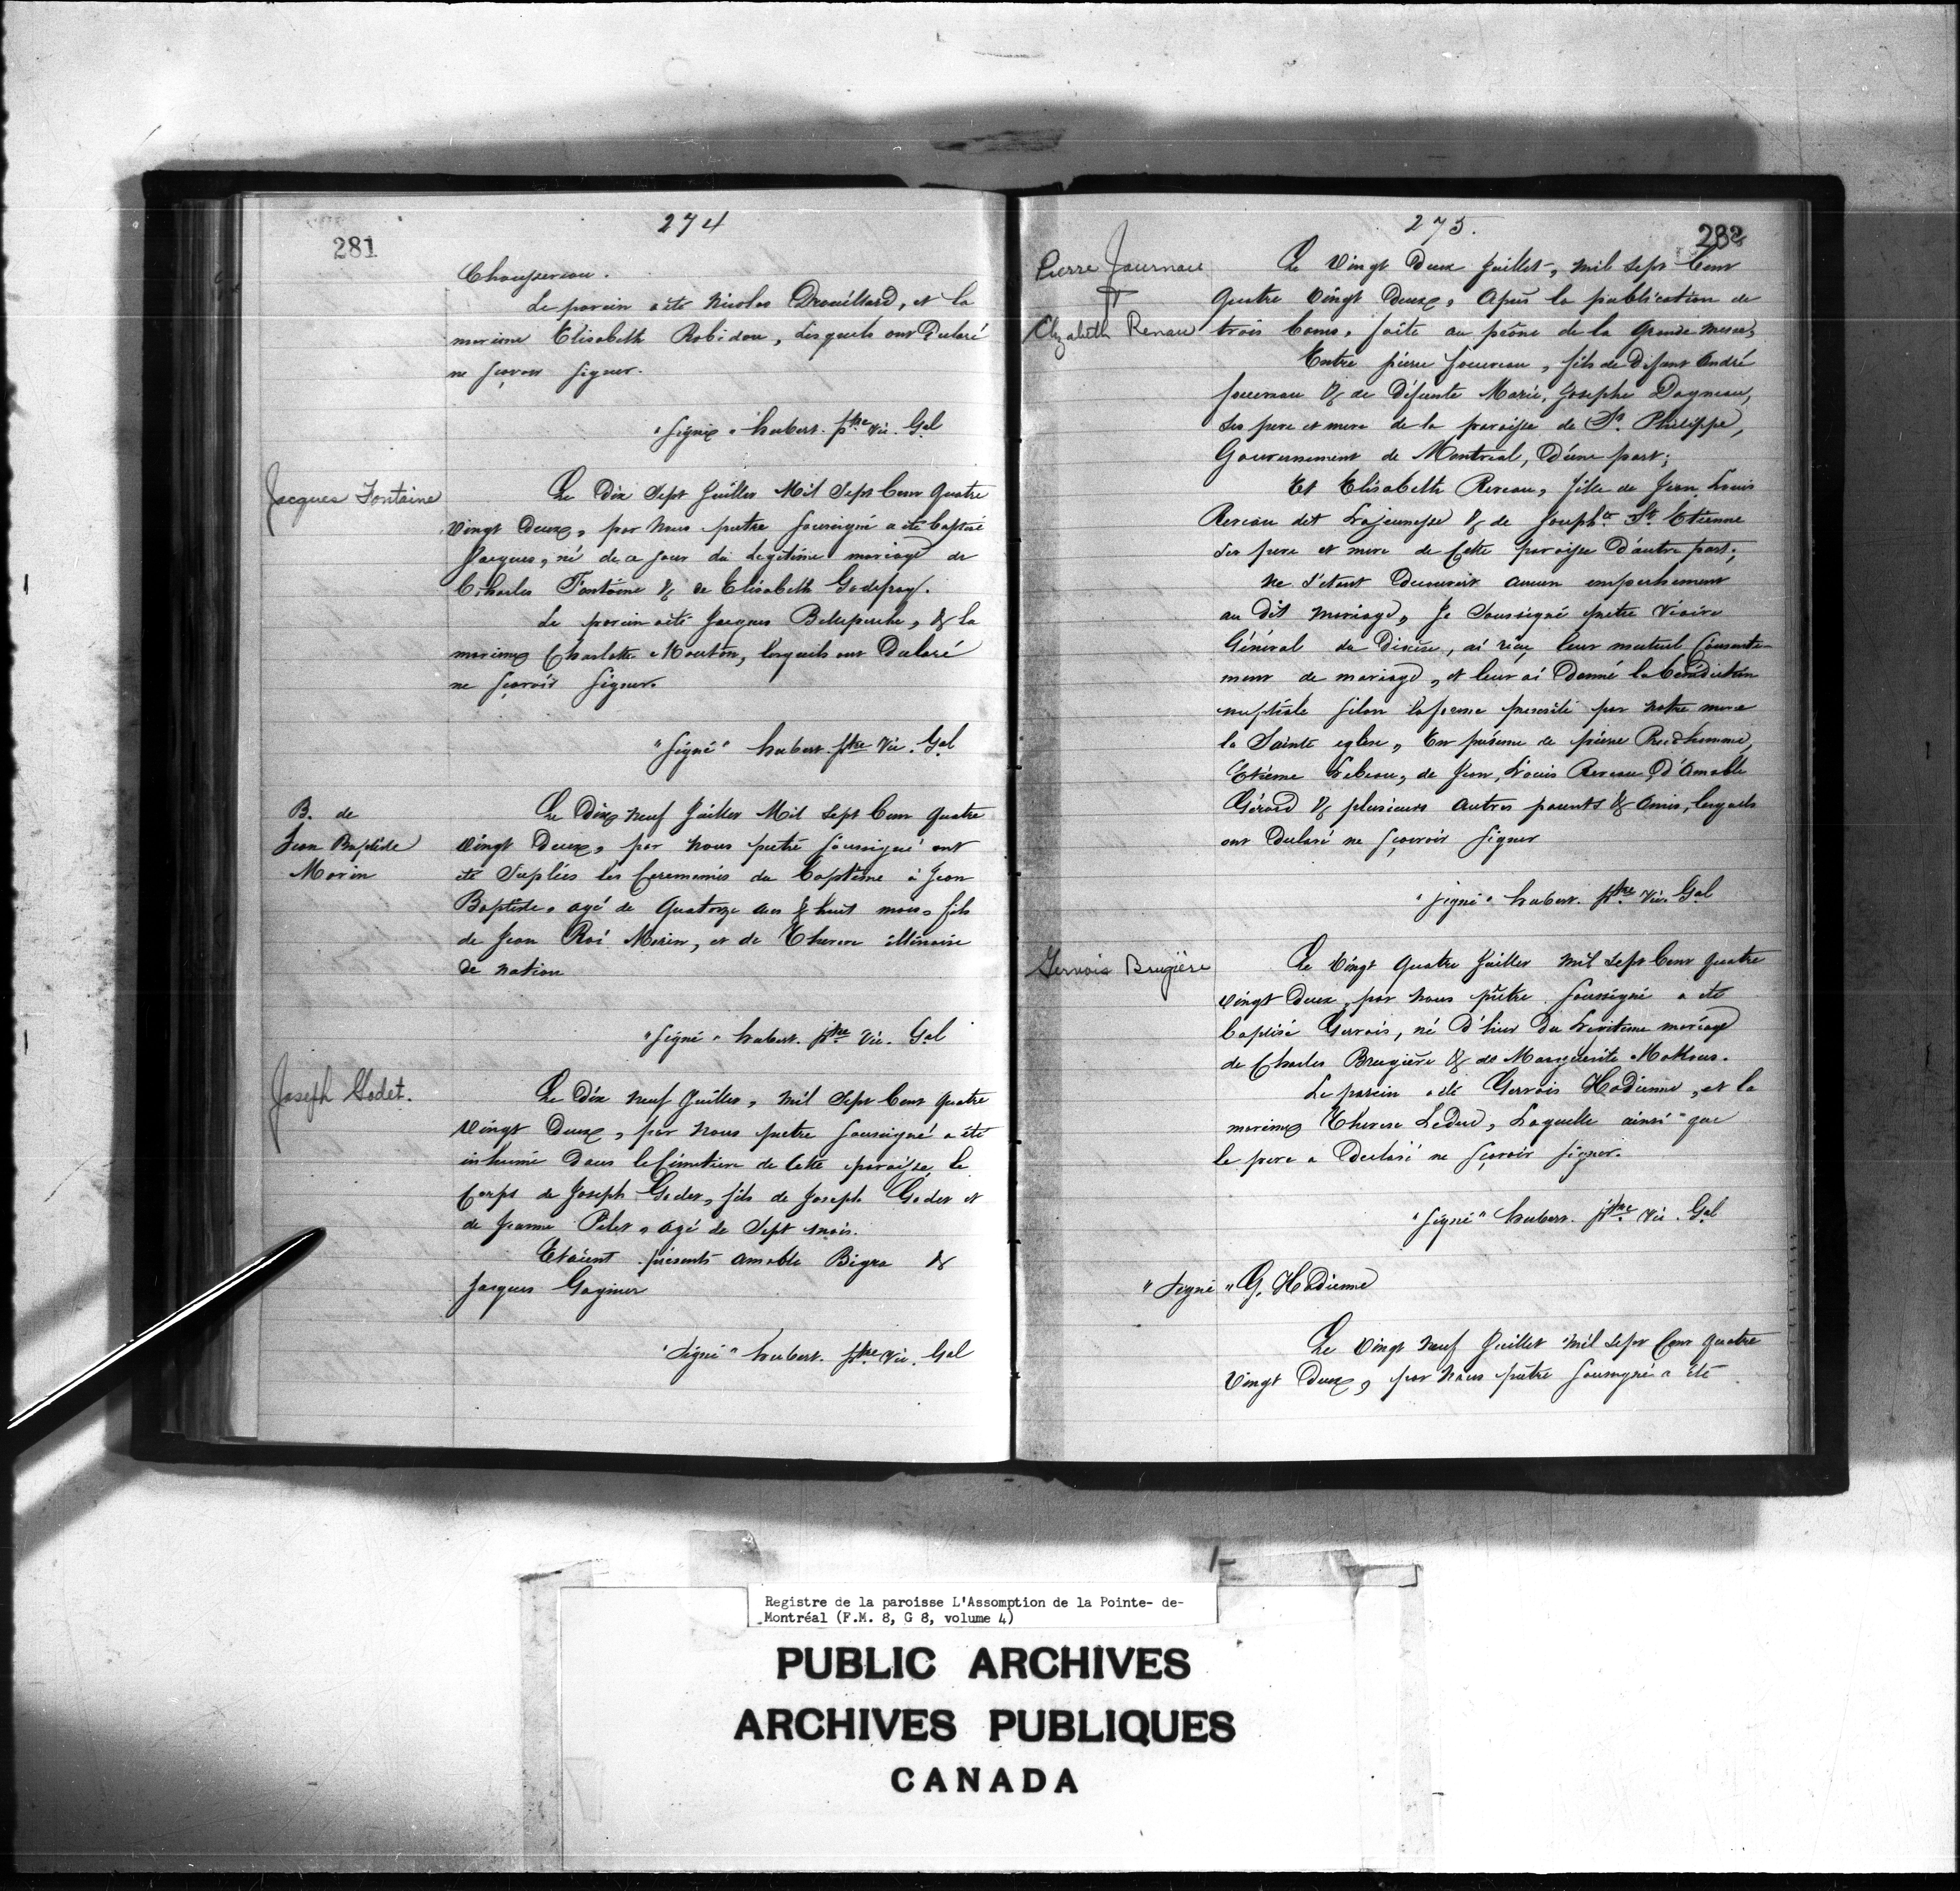 274
281
Chaussereau.
Le parein a été Nicolas Drouillard, et la
mareine Elisabeth Robidou, Lesquels ont Declaré
ne sçavoir signer.
"Signé" hubert. ptre Vic. Gal
Jacques Fontaine
Le Dix Sept Juillet Mil Sept Cent Quatre
Vingt Deux, par Nous pretre soussigné a été baptisé
Jacques, né de ce jour du Legitime mariage de
Charles Fontaine & de Elisabeth Godefroy.
Le parein a été Jacques Belleperche, & la
mareine Charlotte Mouton, lesquels ont Declaré
ne sçavoir signer.
"Signé" hubert. ptre Vic. Gal
B. de
Jean Baptiste
Morin
Le Dix neuf Juillet Mil Sept Cent Quatre
Vingt Deux, par Nous pretre soussigné ont
été Suplées les Ceremonies du Baptême à Jean
Baptiste, agé de Quatorze ans & huit mois, fils
de Jean Roi Morin, et de Therese illinoise
de Nation
"Signé" hubert. ptre Vic. Gal
Joseph Godet.
Le Dix neuf Juillet, Mil Sept Cent Quatre
Vingt Deux, par Nous pretre soussigné a été
inhumé Dans le Cimetiere de Cette paroisse, le
Corps de Joseph Godet, fils de Joseph Godet et
de Jeanne Pilet, agé de Sept mois.
Etoient présents Amable Bigra &
Jacques Gagnier
"Signé" hubert. ptre Vic. Gal
275.
282
Pierre Journau
Elizabeth Renau
Le Vingt Deux Juillet, Mil Sept Cent
Quatre Vingt Deux, Après la publication de
trois bans, faite au prône de la Grande Messe,
Entre pierre Journeau, fils de Défunt André
Journeau & de Défunte Marie, Josephe Dagneau,
Ses pere et mere de la paroisse de St. Philippe,
Gouvernement de Montreal, D'une part;
Et Elisabeth Reneau, fille de Jean Louis
Reneau dit Lajeunesse & de Josephte St. Etienne
Ses pere et mere de Cette paroisse D'autre part;
Ne s'étant Decouvert aucun empechement
au Dit Mariage, Je Soussigné pretre Vicaire
Général du Diocèse, ai reçu leur mutuel Consente-
ment de mariage, et leur ai Donné la bénédiction
nuptiale selon la forme prescrite par notre mere
la Sainte eglise, En présence de pierre Prudhomme,
Etienne Lebeau, de Jean, Louis Reneau, d'Amable
Gérard & plusieurs autres parents & amis, lesquels
ont Declaré ne sçavoir signer
"Signé" hubert. ptre Vic. Gal
Gervais Brugière
Le Vingt Quatre Juillet Mil Sept Cent Quatre
Vingt Deux, par Nous prêtre soussigné a été
baptisé Gervais, né D'hier Du Legitime mariage
de Charles Brugière & de Marguerite
Le parein a été Gervais Hodienne, et la
mareine Therese Leduc, Laquelle ainsi que
le pere a Declaré ne sçavoir signer.
"Signé" hubert. ptre Vic. Gal
"Signé" G. Hodienne
Le Vingt Neuf Juillet Mil Sept Cent Quatre
Vingt Deux, par Nous prêtre soussigné a été
Registre de la paroisse L'Assomption de la Pointe- de-
Montréal (F.M. 8, G 8, volume 4)
PUBLIC ARCHIVES
ARCHIVES PUBLIQUES
CANADA